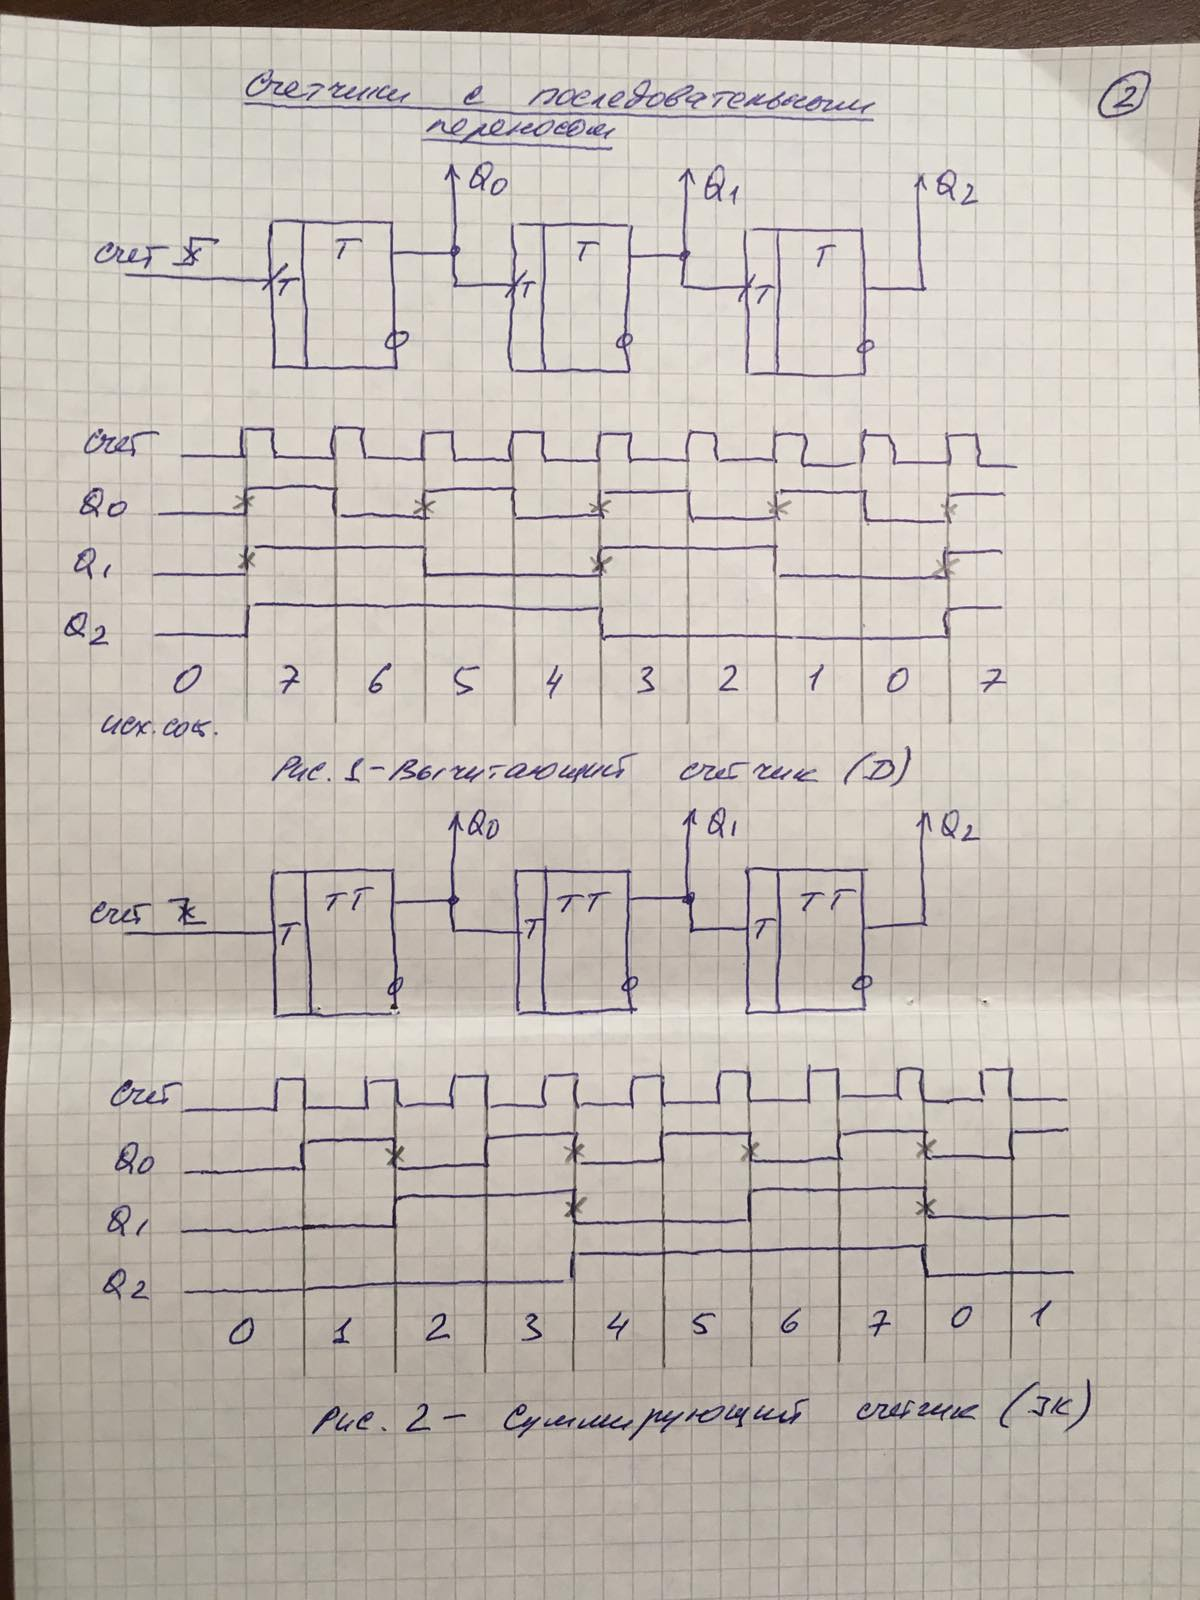 Счетчики с последовательным
переносом
2
Q0 Q1 Q2
счет
T T T
T T T
счет
Q0
Q1
Q2
0 7 6 5 4 3 2 1 0 7
исх. сост.
Рис. 1 - Вычитающий счетчик (D)
Q0 Q1 Q2
счет
TT TT TT
T T T
счет
Q0
Q1
Q2
0 1 2 3 4 5 6 7 0 1
Рис. 2 - Суммирующий счетчик (JK)